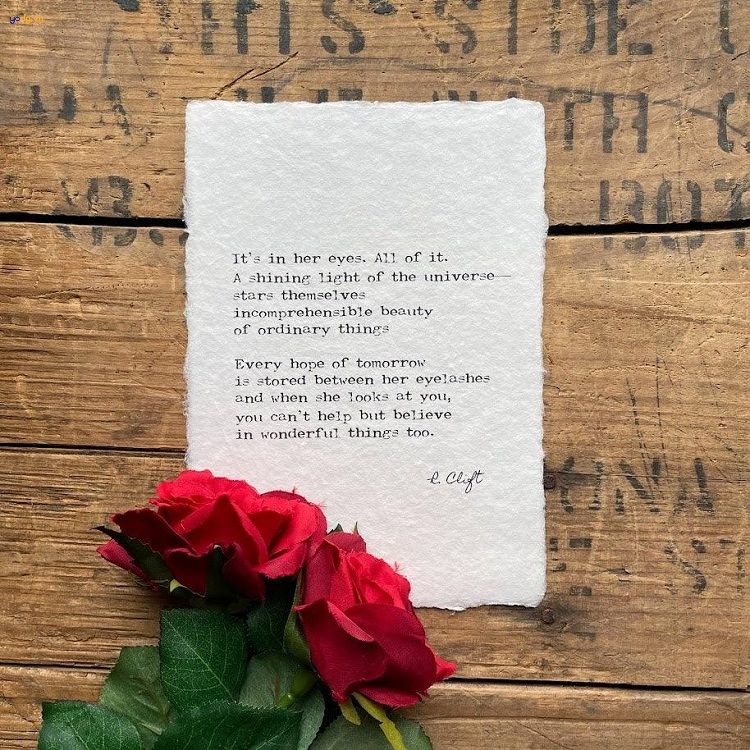 THIS SIDE
WITH
1307
It's in her eyes. All of it.
A shining light of the universe—
stars themselves
incomprehensible beauty
of ordinary things
Every hope of tomorrow
is stored between her eyelashes
and when she looks at you,
you can't help but believe
in wonderful things too.
R. Clift